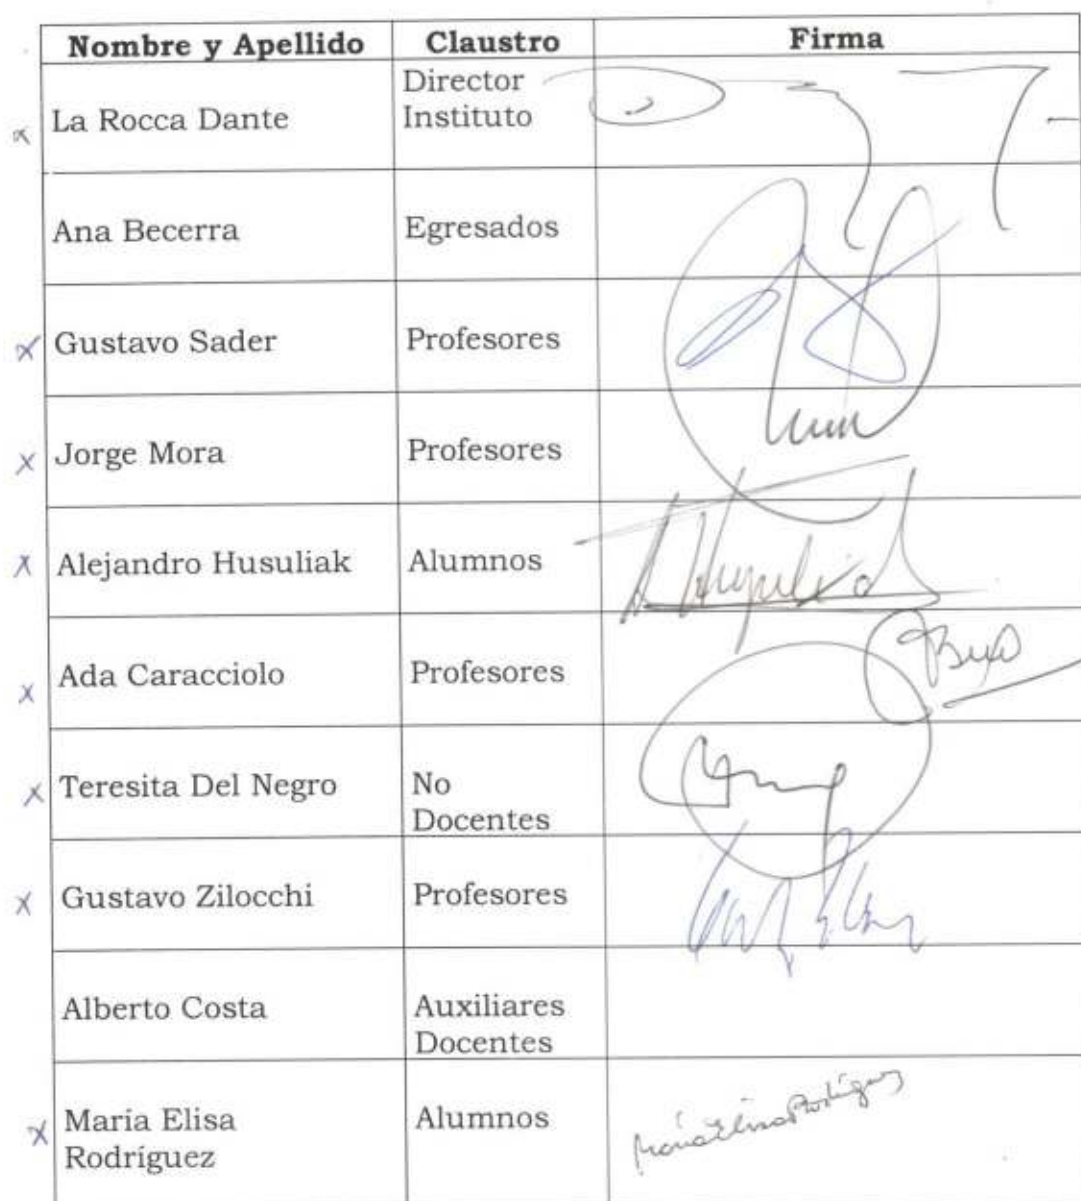 Nombre y Apellido Claustro Firma
La Rocca Dante Director
Instituto
Ana Becerra Egresados
Gustavo Sader Profesores
Jorge Mora Profesores
Alejandro Husuliak Alumnos
Ada Caracciolo Profesores
Teresita Del Negro No
Docentes
Gustavo Zilocchi Profesores
Alberto Costa Auxiliares
Docentes
María Elisa Alumnos
Rodríguez
María Elisa Rodríguez